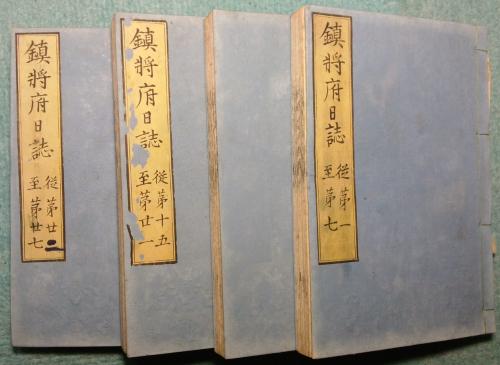 鎮将府日誌
従第一
至第七
鎮将府日誌
従第十五
至第廿一
鎮将府日誌
従第廿二
至第廿七